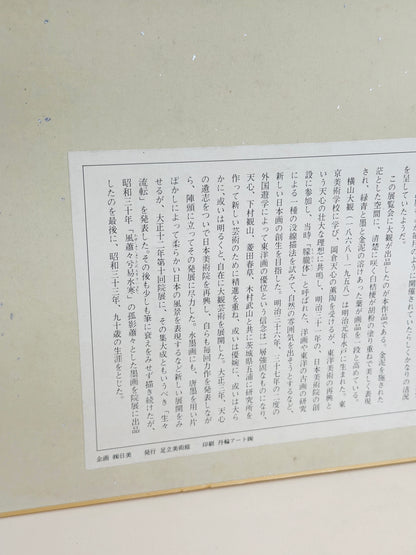 を呈していたようだ。
この展覧会に大観が出品したのが本作品である。金泥を施された
茫とした空間に、清楚に咲く白桔梗が胡粉の塗り重ねで美しく表現
され、緑青と墨と金泥の溶けあった葉が画品を一段と高めている。
横山大観（一八六八〜一九五八）は明治元年水戸に生まれた。東
京美術学校に学び、岡倉天心の薫陶を受けるが、東洋美術の再興と
いう天心の壮大な理想に共鳴し、明治三十一年の、日本美術院の創
設に参加し、当時「朦朧体」と呼ばれた、洋画や東洋の古画の研究
による一種の没線描法を試みて、自然の雰囲気を出そうとするなど、
新しい日本画の創生を目指した。明治三十六年、三十七年の二度の
外国遊学によって東洋画の優位という信念は一層強固なものになり、
天心、下村観山、菱田春草、木村武山と共に茨城県五浦に研究所を
作って新しい芸術のために精進を重ね、或いは優婉に、或いは大ら
かに、或いは明るくと、自在に大観芸術を展開した。大正二年、天心
の遺志をついで日本美術院を再興し、自らも毎回力作を発表しなが
ら、陣頭に立ってその発展に尽力した。水墨画にも、唐墨を用い片
ぼかしによって柔らかい日本の風景を表現するなど新しい展開をみ
せるが、大正十二年第十回院展に、その集大成ともいうべき「生々
流転」を発表した。その後も少しも筆に衰えをみせず描き続けたが、
昭和三十年「風蕭々兮易水寒」の孤影蕭々とした墨画を院展に出品
したのを最後に、昭和三十三年、九十歳の生涯をとじた。
企画 ㈱日美 発行 足立美術館 印刷 丹輪アート㈱